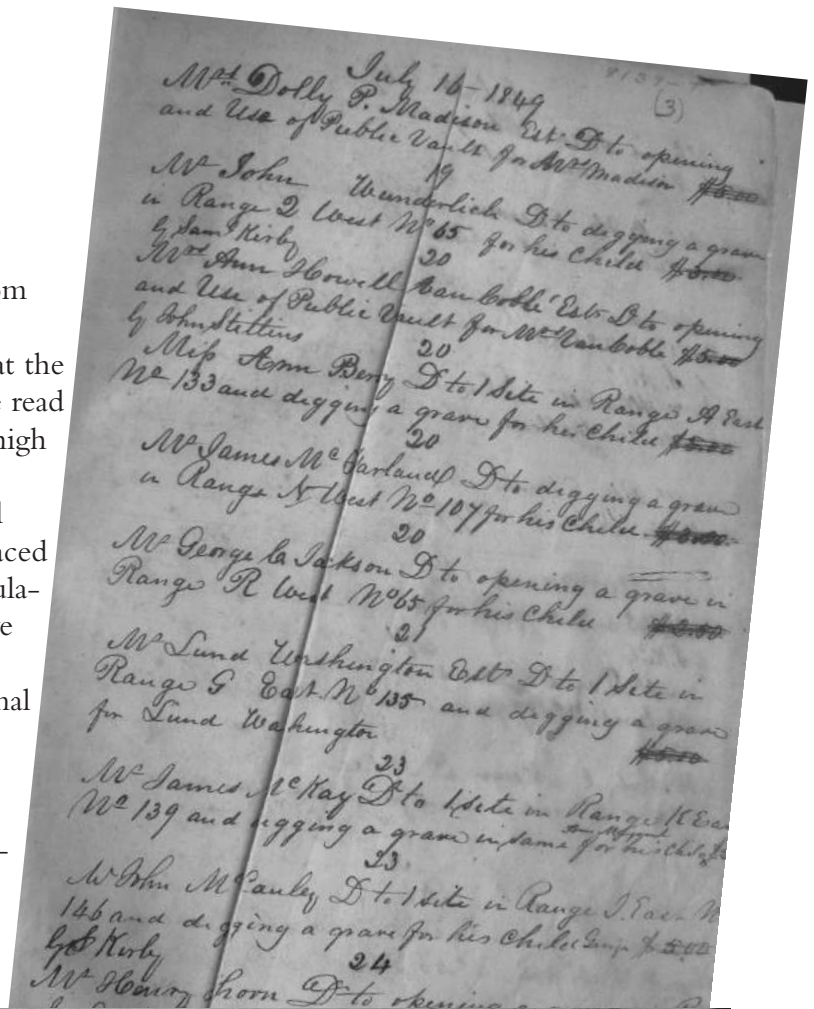 om
at the
e read
high
l
aced
ula-
e
nal
-
(3)
July 16 - 1849
Mrs Dolly P. Madison Est. Dr to opening
and Use of Public Vault for Mrs Madison $5.00
19
Mr John Wunderlich Dr to digging a grave
in Range 2 West No 65 for his Child $3.00
by Saml Kirby
20
Mrs Ann Howell Van Coble Est. Dr to opening
and Use of Public Vault for Mrs Van Coble $5.00
by John Stettins
20
Miss Ann Berry Dr to 1 Site in Range A East
No 133 and digging a grave for her Child $5.00
20
Mr James McFarland Dr to digging a grave
in Range N West No 107 for his Child $3.00
20
Mr George C. Jackson Dr to opening a grave in
Range R West No 65 for his Child $2.50
21
Mr Lund Washington Est. Dr to 1 Site in
Range G East No 135 and digging a grave
for Lund Wahington
$5.00
23
Mr James McKay Dr to 1 site in Range K Eas
No 139 and digging a grave in same for his Child
23
Mr John McCauley Dr to 1 site in Range J. East N
146 and digging a grave for his Child $5.00
by S Kirby
24
Mr Henry horn Dr to opening